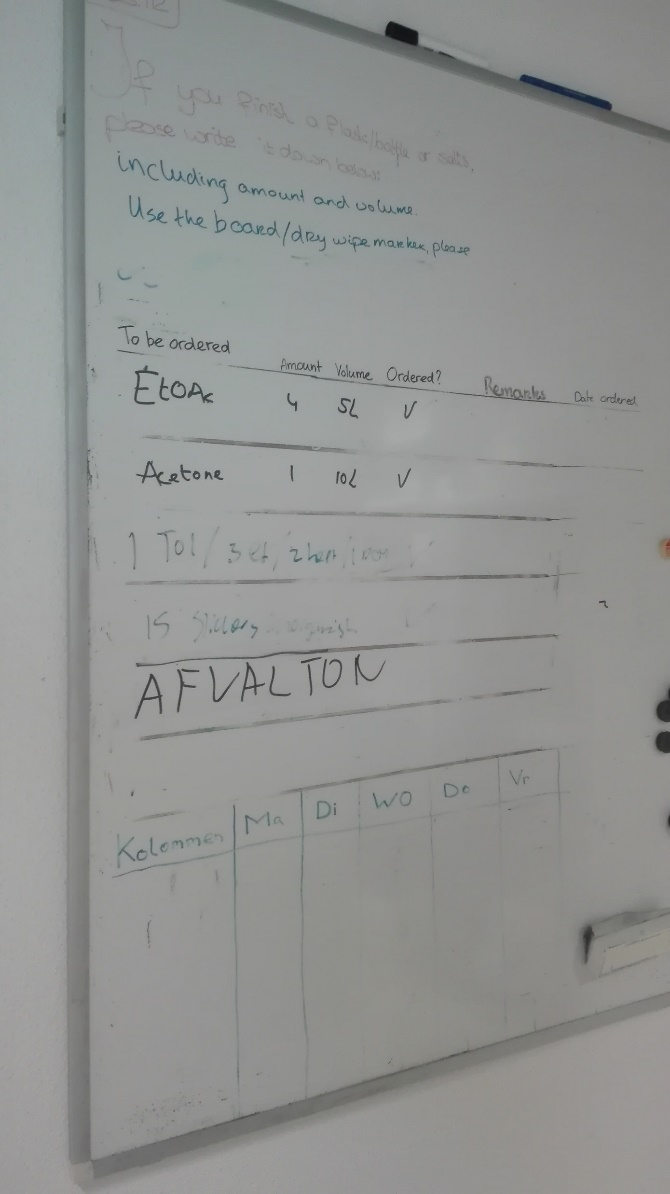 If
you finish a flask/bottle or salts,
please write it down below
including amount and volume.
Use the board/dry wipe marker, please
To be ordered Amount Volume Ordered? Remarks Date ordered
EtOAc 4 5L V
Acetone 1 10L V
1 Tol/3 et, 2
15
AFVALTON
Kolommen Ma Di WO Do Vr